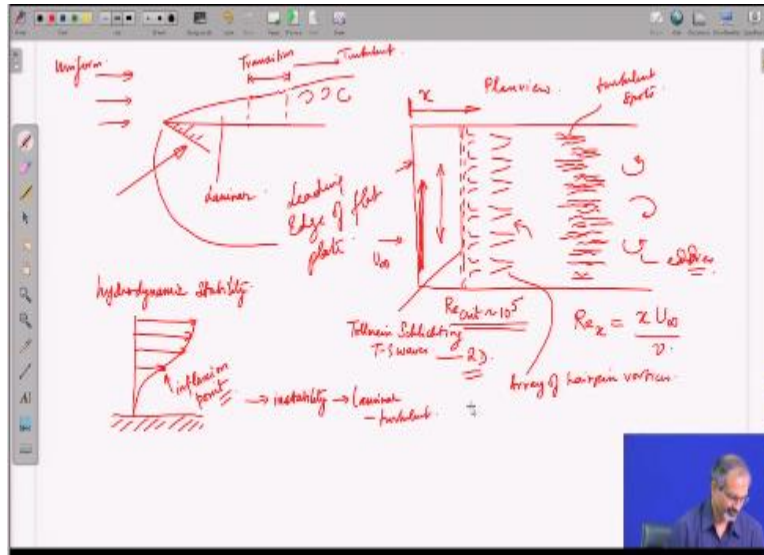 Uniform
Transition
Turbulent
Laminar
Leading
Edge of flat
plate
x
Planview
turbulent
spots
U∞
eddies
Recrit ~ 10^5
Tollmein Schlichting
T-S waves — 2D
Re_x = x U∞ / ν
Array of hairpin vortices
hydrodynamic stability
inflexion
point
→ instability → Laminar
- turbulent